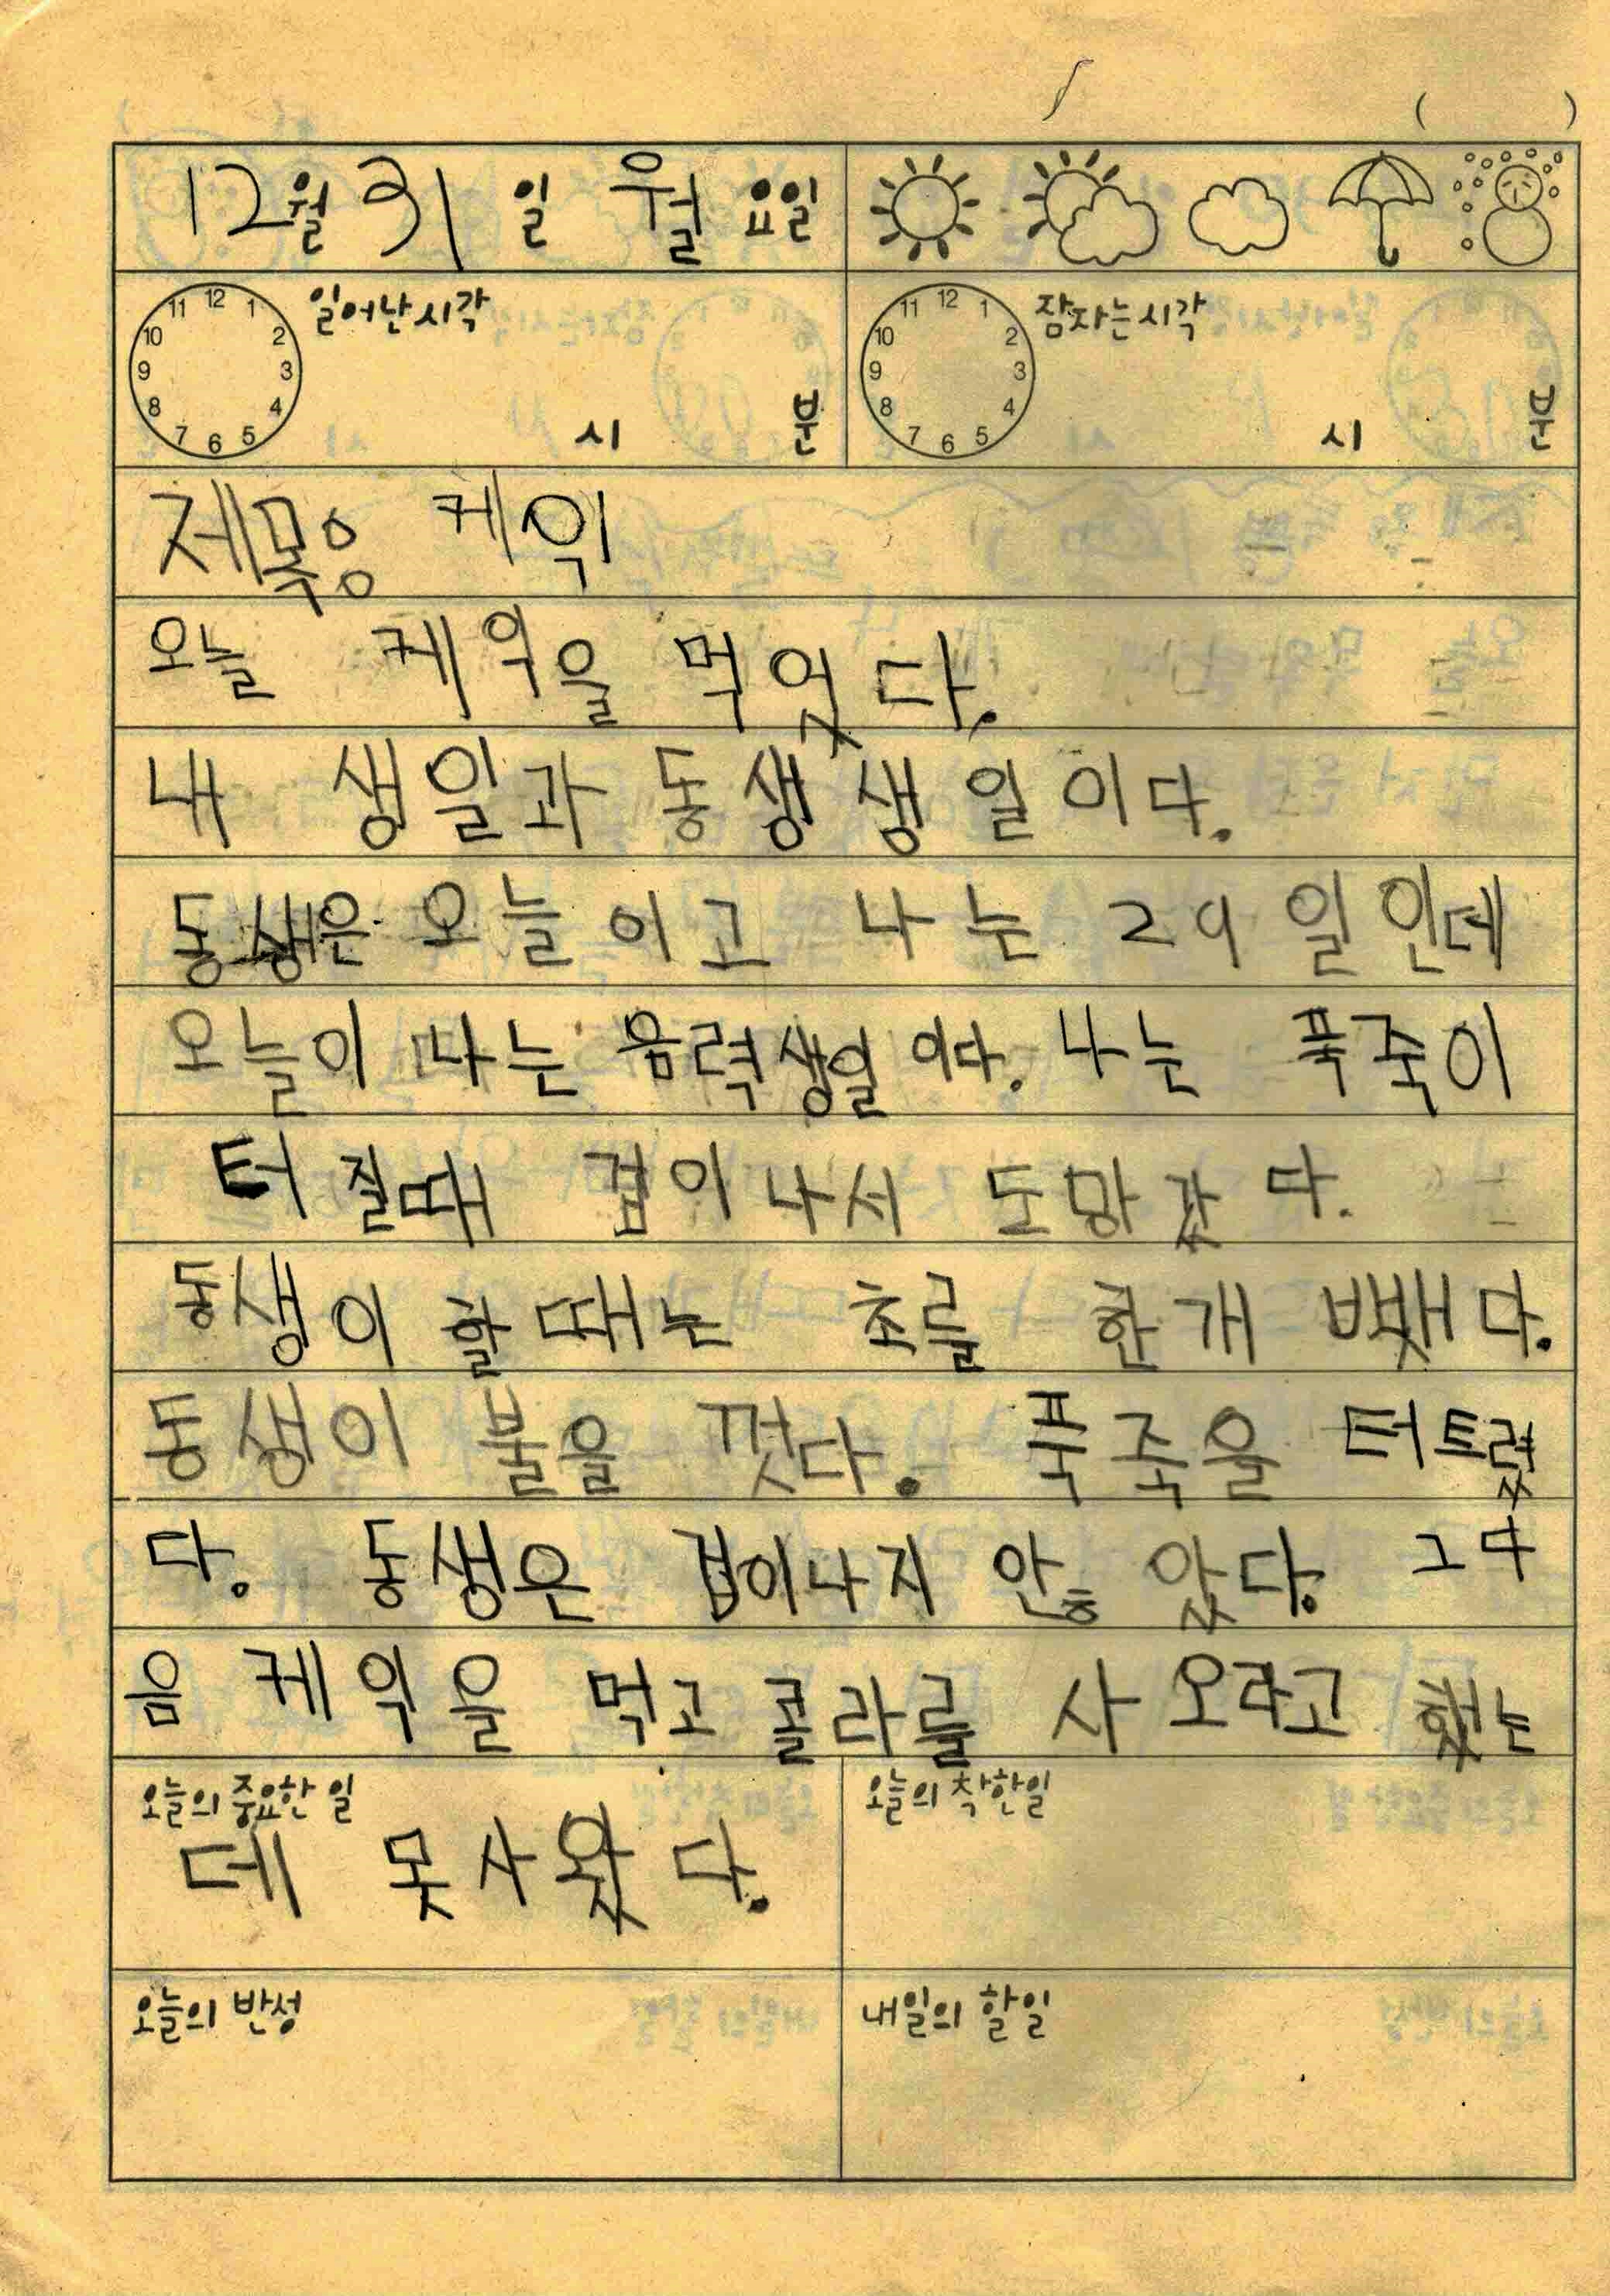 ( )
12월 31일 월요일
12 1 2 3 4 5 6 7 8 9 10 11 일어난시각 시 분
12 1 2 3 4 5 6 7 8 9 10 11 잠자는시각 시 분
제목 케익
오늘 케익을 먹었다.
내 생일과 동생 생일이다.
동생은 오늘이고 나는 29일인데
오늘이 나는 음력생일이다. 나는 폭죽이
터질때 겁이나서 도망갔다.
동생이 할때는 초를 한개 뺐다.
동생이 불을 껏다. 폭죽을 터트렸
다. 동생은 겁이나지 안 았다. 그다
음 케익을 먹고 콜라를 사오라고 했는
오늘의 중요한 일
데 못사왔다.
오늘의 착한일
오늘의 반성
내일의 할일